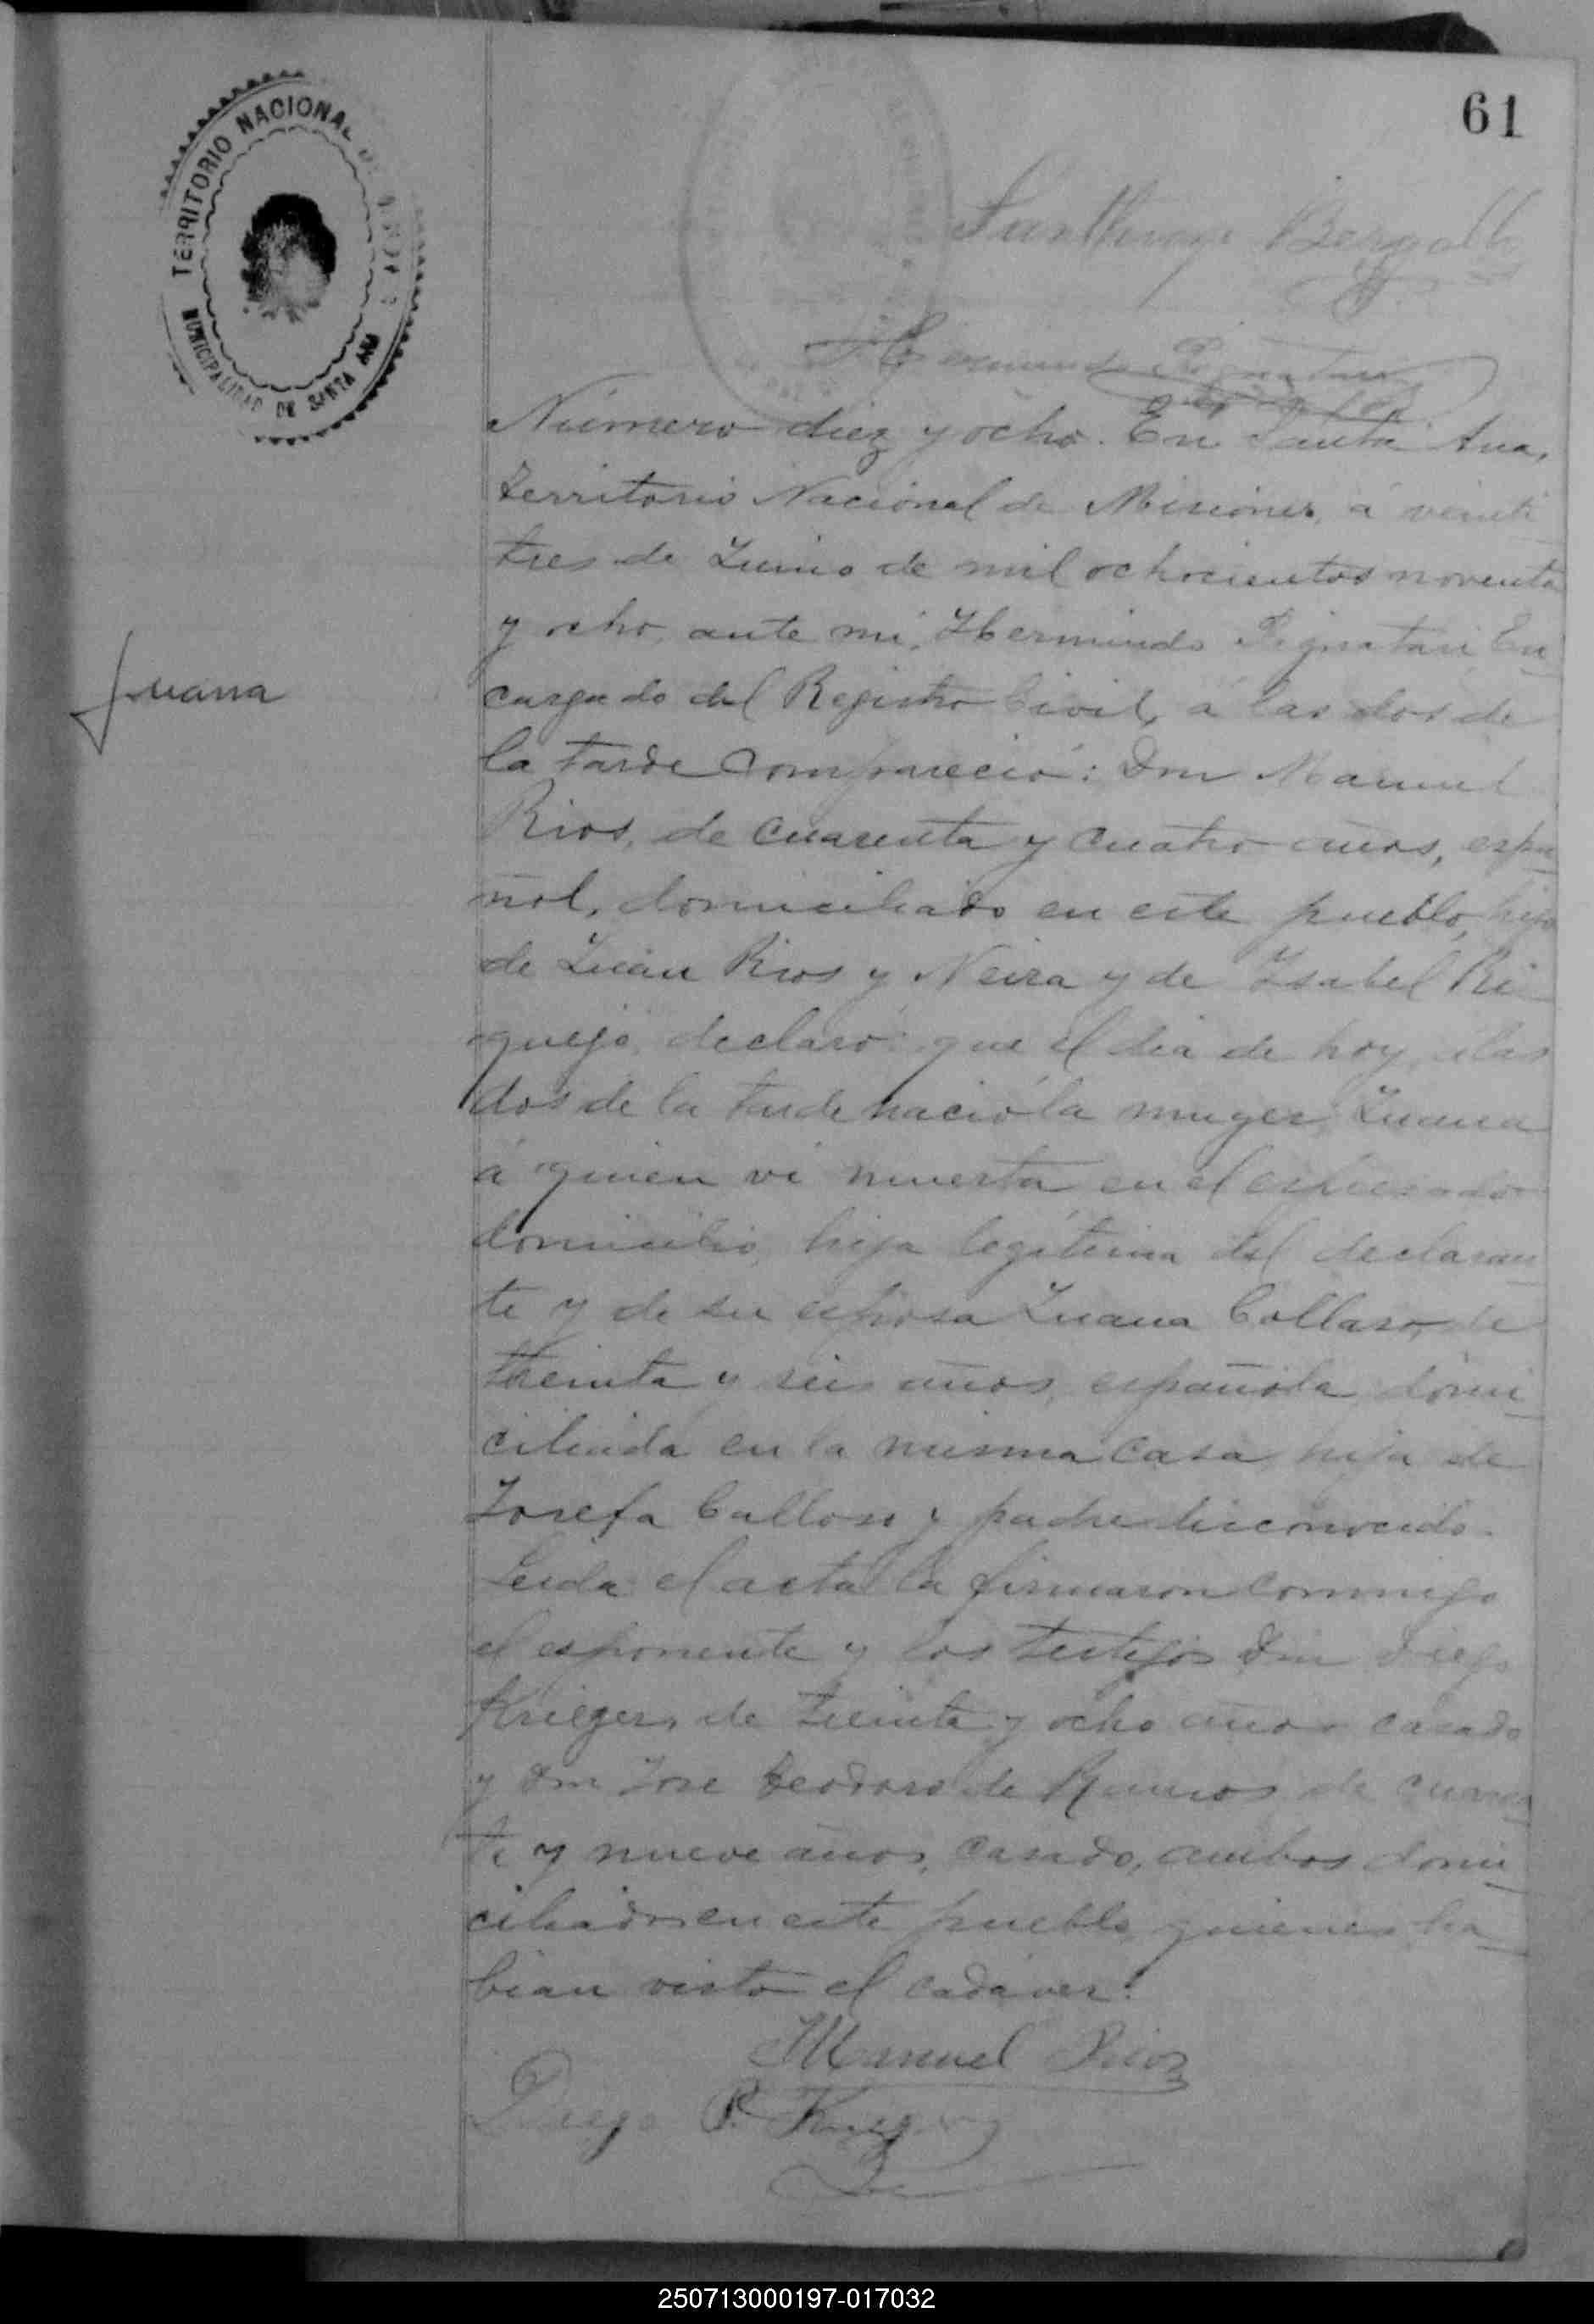 61
TERRITORIO NACIONAL DE MISIONES
MUNICIPALIDAD DE SANTA ANA
Juana
Número diez y ocho. En Santa Ana,
Territorio Nacional de Misiones, á veinti
tres de Junio de mil ochocientos noventa
y ocho, ante mi, Herminido Pignatari En
cargado del Registro Civil, á las dos de
la tarde compareció: Don Manuel
Rios, de cuarenta y cuatro años, espa
ñol, domiciliado en este pueblo, hijo
de Juan Rios y Neira y de Isabel Ri
quejo, declaró: que el dia de hoy, á las
dos de la tarde nació la muger Juana
á quien vi muerta en el espresado
domicilio, hija legítima del declaran
te y de su esposa Juana Collaso, de
treinta y seis años, española, domi
ciliada en la misma casa, hija de
Josefa Colloso y padre desconocido.
Leida el acta la firmaron conmigo
el esponente y los testigos Don Diego
Krieger, de treinta y ocho años casado
y Don Jose Teodoro de Ramos de cuaren
ta y nueve años, casado, ambos domi
ciliados en este pueblo, quienes ha
bian visto el cadáver.
Manuel Rios
Diego P. Krieger
250713000197-017032